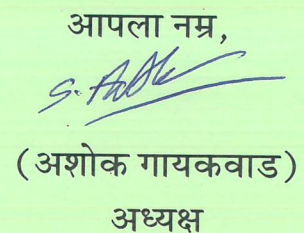 आपला नम्र,
(अशोक गायकवाड)
अध्यक्ष